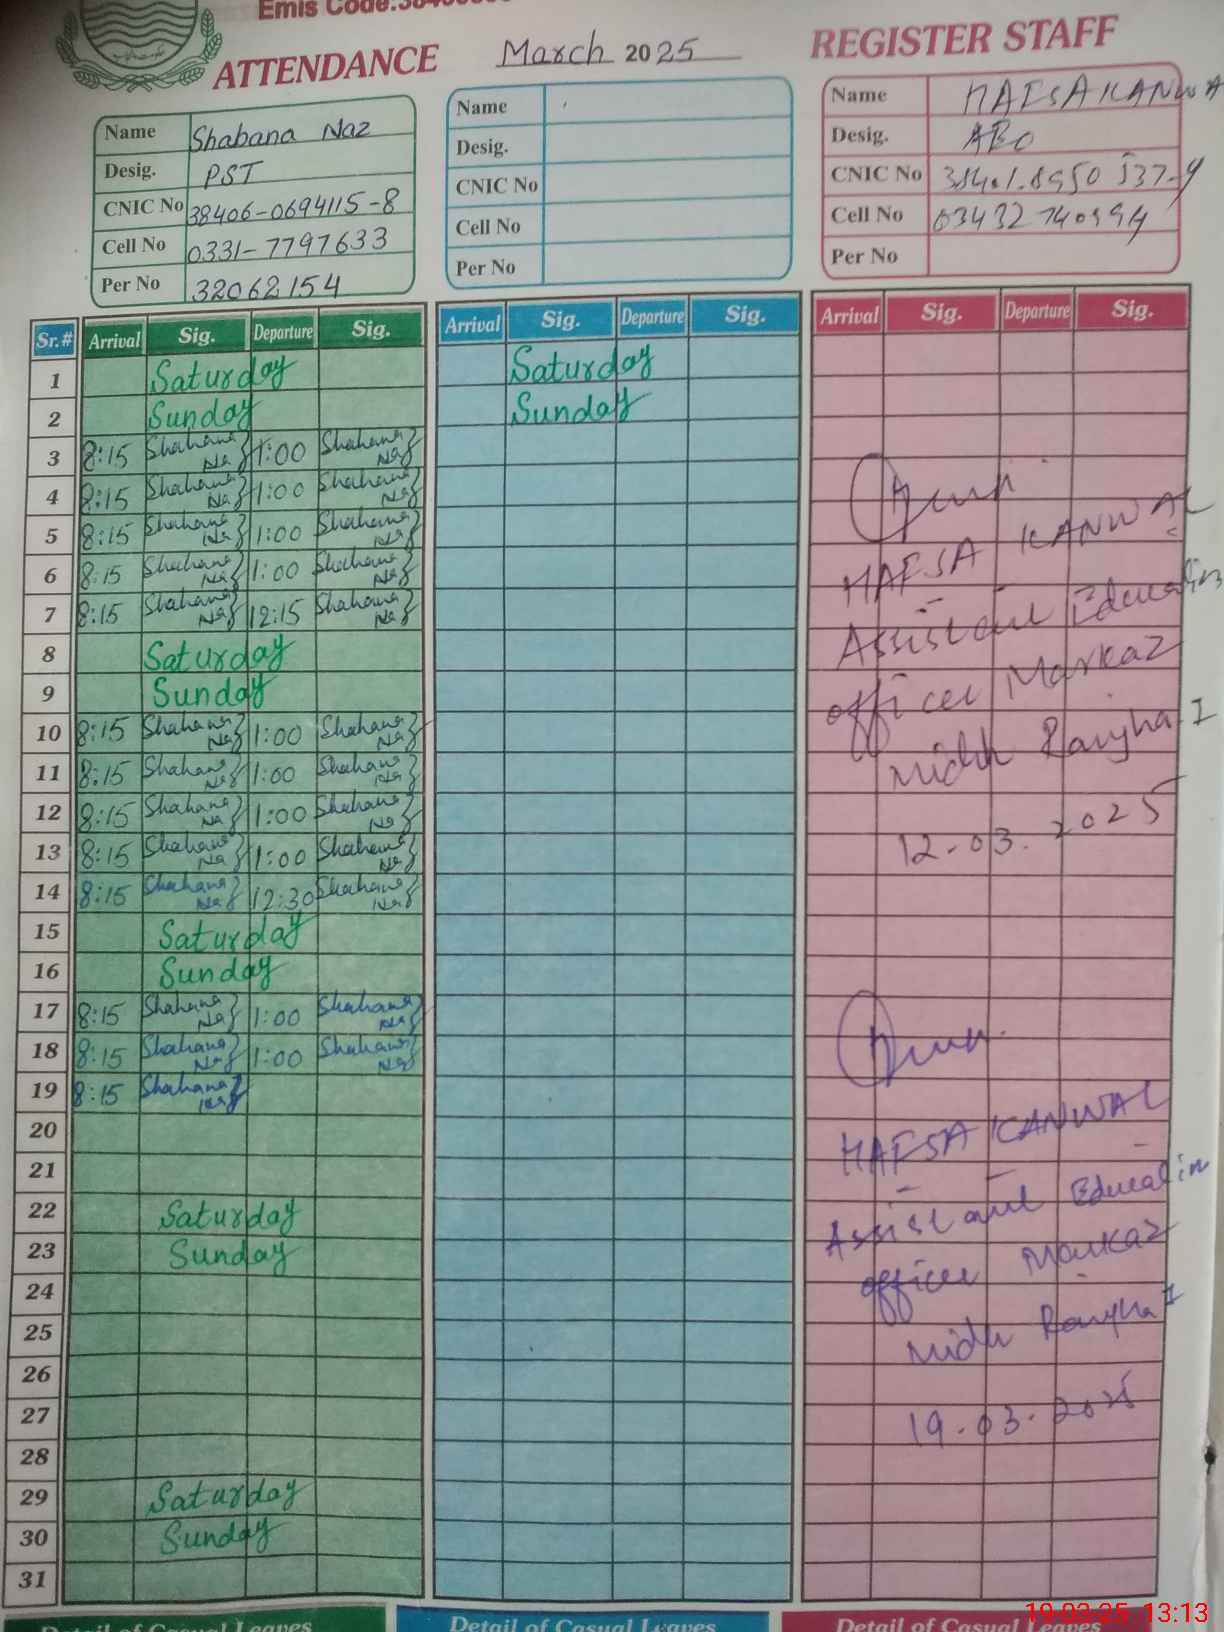 Emis Code:
ATTENDANCE March 2025 REGISTER STAFF
Name Shabana Naz
Desig. PST
CNIC No 38406-0694115-8
Cell No 0331-7797633
Per No 32062154
Name
Desig.
CNIC No
Cell No
Per No
Name HAFSA KANWA
Desig. AEO
CNIC No
Cell No
Per No
Sr.# Arrival Sig. Departure Sig. Arrival Sig. Departure Sig. Arrival Sig. Departure Sig.
1 Saturday Saturday
2 Sunday Sunday
3 8:15 Shabana Naz 1:00 Shabana Naz
4 8:15 Shabana Naz 1:00 Shabana Naz
5 8:15 Shabana Naz 1:00 Shabana Naz
6 8:15 Shabana Naz 1:00 Shabana Naz
7 8:15 Shabana Naz 12:15 Shabana Naz
8 Saturday
9 Sunday
10 8:15 Shabana Naz 1:00 Shabana Naz
11 8:15 Shabana Naz 1:00 Shabana Naz
12 8:15 Shabana Naz 1:00 Shabana Naz
13 8:15 Shabana Naz 1:00 Shabana Naz
14 8:15 Shabana Naz 12:30 Shabana Naz
15 Saturday
16 Sunday
17 8:15 Shabana Naz 1:00 Shabana Naz
18 8:15 Shabana Naz 1:00 Shabana Naz
19 8:15 Shabana Naz
20
21
22 Saturday
23 Sunday
24
25
26
27
28
29 Saturday
30 Sunday
31
HAFSA KANWAL
Assistant Education
officer Markaz
Midh Ranjha I
12-03.2025
HAFSA KANWAL
Assistant Education
officer Markaz
Midh Ranjha I
19-03-2025
Detail of Casual Leaves Detail of Casual Leaves Detail of Casual Leaves
19-03-25 13:13